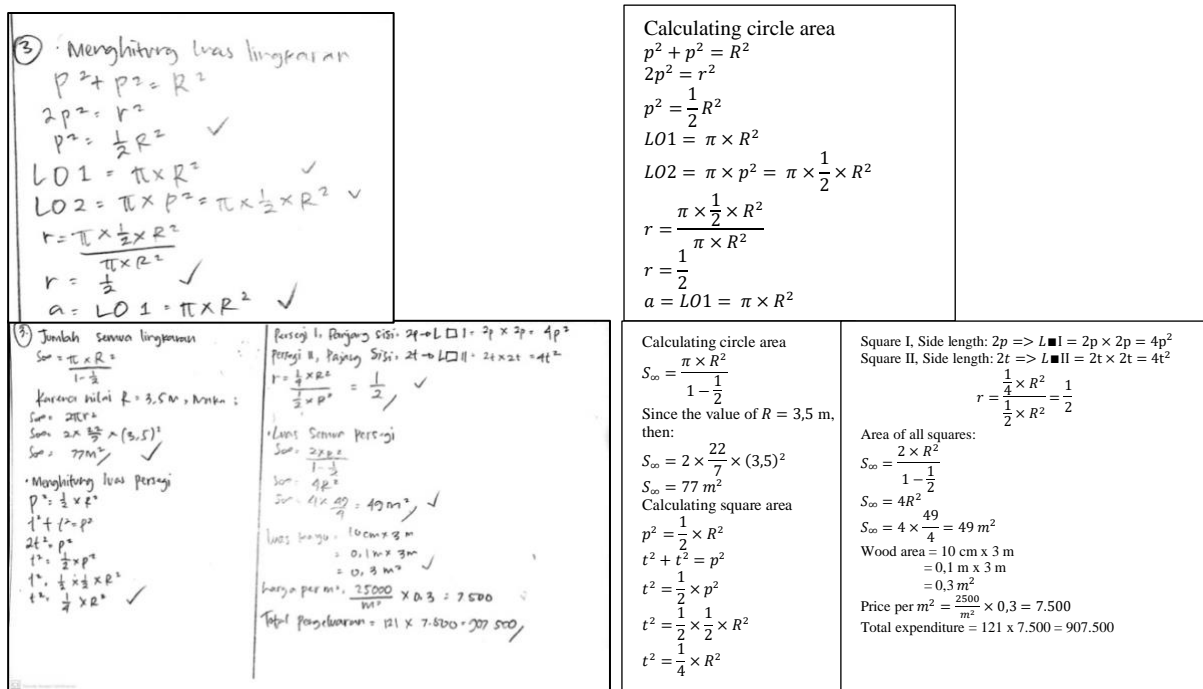 ③ · Menghitung luas lingkaran
p² + p² = R²
2p² = r²
p² = ½ R² ✓
LO1 = π × R² ✓
LO2 = π × p² = π × ½ × R² ✓
r = (π × ½ × R²) / (π × R²)
r = ½ ✓
a = LO1 = π × R² ✓
Calculating circle area
p² + p² = R²
2p² = r²
p² = 1/2 R²
LO1 = π × R²
LO2 = π × p² = π × 1/2 × R²
r = (π × 1/2 × R²) / (π × R²)
r = 1/2
a = LO1 = π × R²
③. Jumlah semua lingkaran
S∞ = (π × R²) / (1 - ½)
Karena nilai R = 3,5 m, Maka :
S∞ = 2πr²
S∞ = 2 × 22/7 × (3,5)²
S∞ = 77 m² ✓
· Menghitung luas persegi
p² = ½ × R²
t² + t² = p²
2t² = p²
t² = ½ × p²
t² = ½ × ½ × R²
t² = ¼ × R² ✓
Persegi I, Panjang sisi: 2p → L □ I = 2p × 2p = 4p²
Persegi II, Pajang Sisi: 2t → L □ II = 2t × 2t = 4t²
r = (¼ × R²) / (½ × R²) = 1/2 ✓
· Luas Semua Persegi
S∞ = (2 × R²) / (1 - ½)
S∞ = 4R²
S∞ = 4 × 49/4 = 49 m² ✓
luas kayu = 10 cm × 3 m
= 0,1 m × 3 m
= 0,3 m² ✓
harga per m² = 25000/m² × 0,3 = 7500
Total pengeluaran = 121 × 7.500 = 907 500
Calculating circle area
S∞ = (π × R²) / (1 − 1/2)
Since the value of R = 3,5 m,
then:
S∞ = 2 × 22/7 × (3,5)²
S∞ = 77 m²
Calculating square area
p² = 1/2 × R²
t² + t² = p²
t² = 1/2 × p²
t² = 1/2 × 1/2 × R²
t² = 1/4 × R²
Square I, Side length: 2p => L■I = 2p × 2p = 4p²
Square II, Side length: 2t => L■II = 2t × 2t = 4t²
r = (1/4 × R²) / (1/2 × R²) = 1/2
Area of all squares:
S∞ = (2 × R²) / (1 − 1/2)
S∞ = 4R²
S∞ = 4 × 49/4 = 49 m²
Wood area = 10 cm x 3 m
= 0,1 m x 3 m
= 0,3 m²
Price per m² = 2500/m² × 0,3 = 7.500
Total expenditure = 121 x 7.500 = 907.500